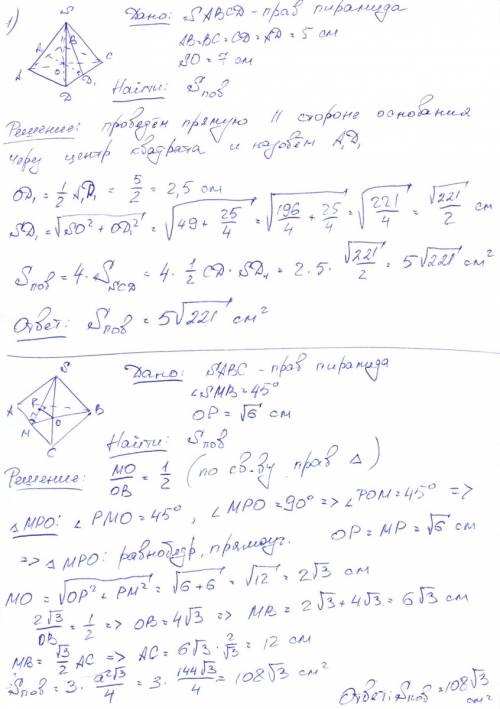 1)
Дано: SABCD - прав пирамида
AB=BC=CD=AD=5 см
SO=7 см
Найти: Sпов
S
A B C
A₁ O D₁
D
Решение: проведём прямую || стороне основания
через центр квадрата и назовём A₁D₁
OD₁ = 1/2 A₁D₁ = 5/2 = 2,5 см
SD₁ = √(SO² + OD₁²) = √(49 + 25/4) = √(196/4 + 25/4) = √(221/4) = √221/2 см
Sпов = 4 · S_SCD = 4 · 1/2 CD · SD₁ = 2 · 5 · √221/2 = 5√221 см²
Ответ: Sпов = 5√221 см²
Дано: SABC - прав пирамида
∠SMB = 45°
OP = √6 см
Найти: Sпов
S
A P B
M O
C
Решение: MO/OB = 1/2 (по св-ву прав △)
△MPO: ∠PMO = 45°, ∠MPO = 90° => ∠POM = 45° =>
=> △MPO: равнобедр, прямоуг. OP = MP = √6 см
MO = √(OP² + PM²) = √(6+6) = √12 = 2√3 см
2√3/OB = 1/2 => OB = 4√3 => MB = 2√3 + 4√3 = 6√3 см
MB = √3/2 AC => AC = 6√3 · 2/√3 = 12 см
Sпов = 3 · a²√3/4 = 3 · 144√3/4 = 108√3 см²
Ответ: Sпов = 108√3 см²